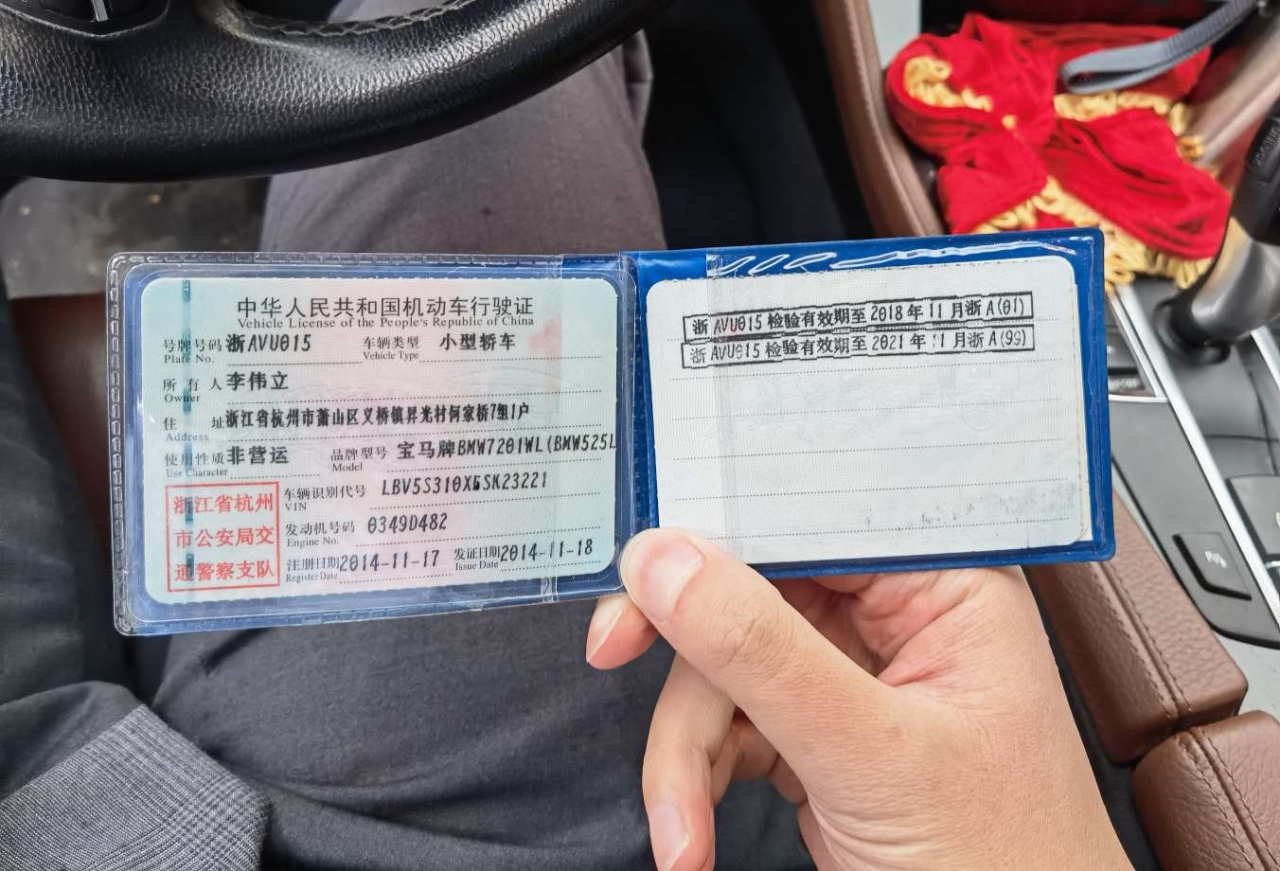 中华人民共和国机动车行驶证
Vehicle License of the People's Republic of China
号牌号码 浙AVU015 车辆类型 小型轿车
Plate No. Vehicle Type
所有人 李伟立
Owner
住址 浙江省杭州市萧山区义桥镇昇光村何家桥7组1户
Address
使用性质 非营运 品牌型号 宝马牌BMW7201WL(BMW525L
Use Character Model
浙江省杭州
市公安局交
通警察支队
车辆识别代号 LBV5S310XESK23221
VIN
发动机号码 0349D482
Engine No.
注册日期 2014-11-17 发证日期 2014-11-18
Register Date Issue Date
浙AVU015 检验有效期至2018年11月浙A(01)
浙AVU015 检验有效期至2021年11月浙A(99)